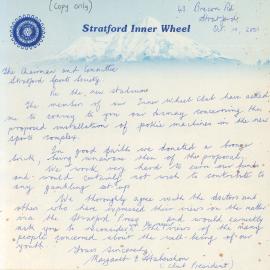 (Copy only)
Stratford Inner Wheel
Stratford
The Chairman and Committee
Stratford Sport Society
Re the new stadium
The members of our Inner Wheel Club have asked
me to convey to you our dismay concerning the
proposed installation of pokie machines in the new
sports complex.
In good faith we donated a
brick, being unaware then of the proposal.
We work very hard to earn our funds
and would certainly not wish to contribute to
any gambling set up
We thoroughly agree with the doctors and
others who have expressed their views on the matter
via the Stratford Press and would earnestly
ask you to reconsider the views of the many
people concerned about the well-being of our
youth.
Yours sincerely
Margaret E
(Club President)